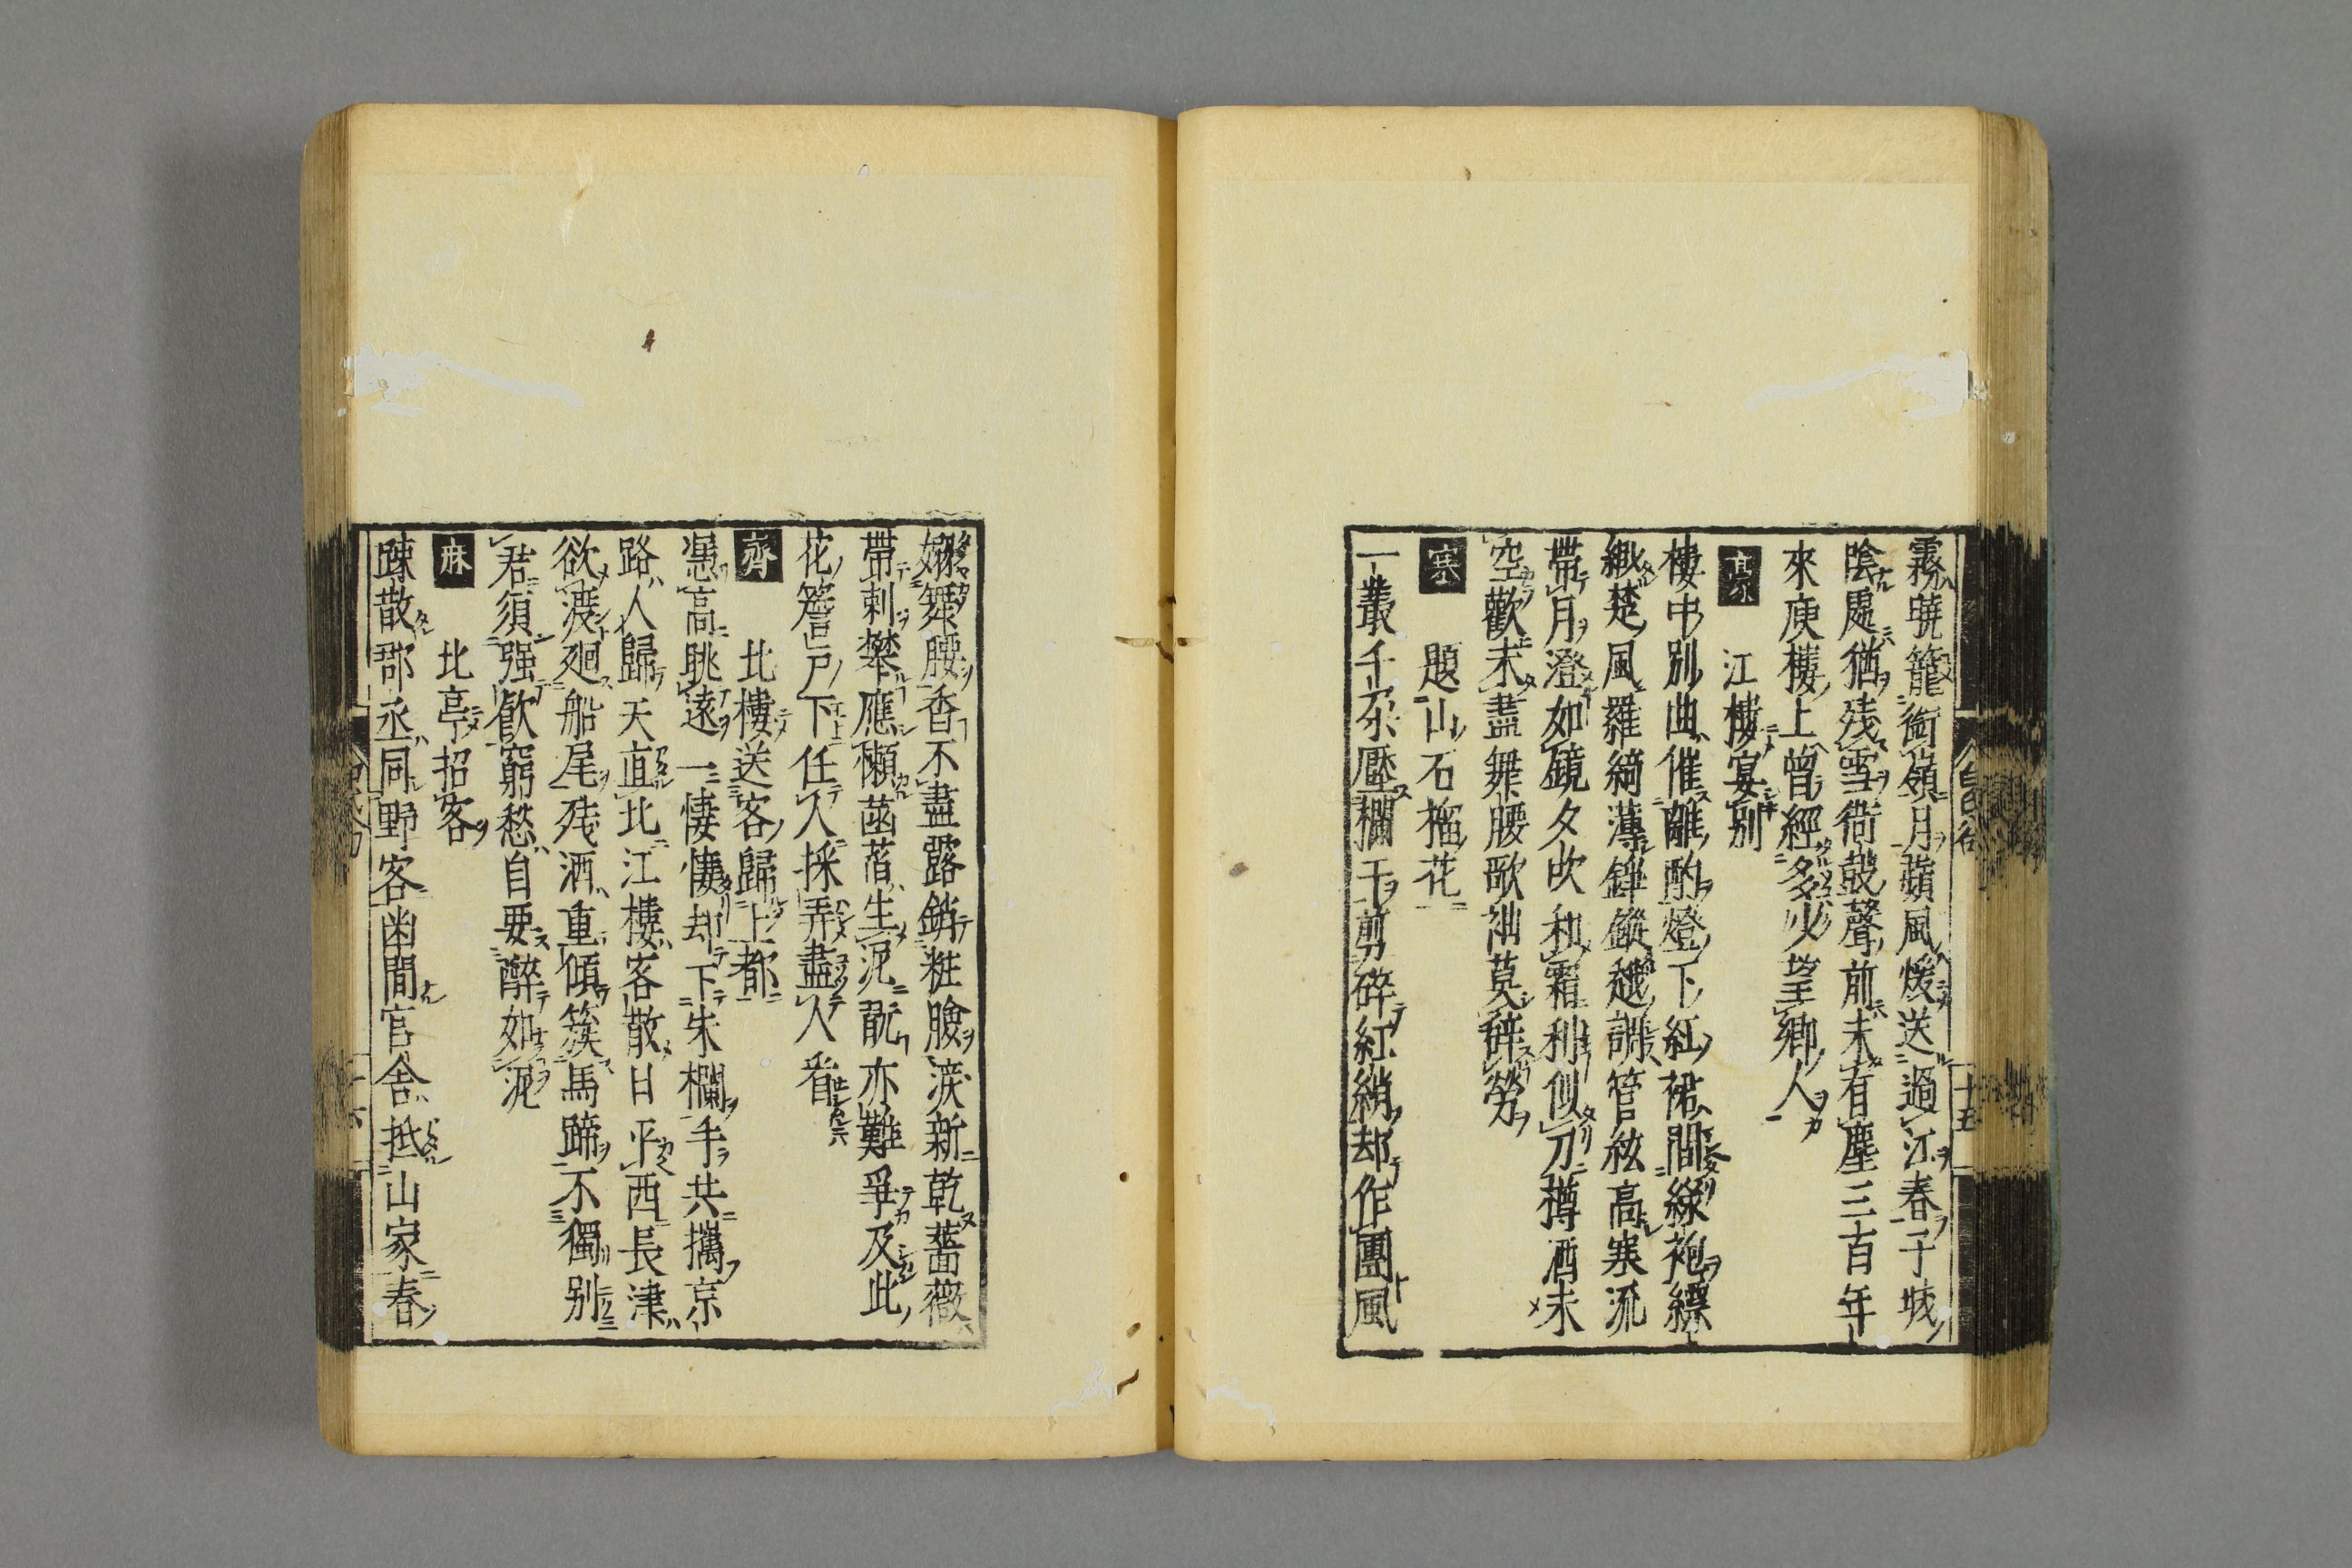 霧曉籠銜嶺月蘋風煖送過江春子城
陰處猶残雪衙鼓聲前未有塵三百年
來庾樓上曾經多少望郷人
豪 江樓宴別
樓中別曲催離酌燈下紅裙間綠袍縹
緲楚風羅綺薄錚鏦越調管絃高寒流
帶月澄如鏡夕吹和霜利似刀樽酒未
空歡未盡舞腰歌袖莫辞勞
寒 題山石榴花
一叢千朶壓欄干剪碎紅綃却作團風
嫋舞腰香不盡露銷粧臉淚新乾薔薇
帶刺攀應懶菡萏生泥翫亦難爭及此
花簷戸下任人採弄盡人看
齊 北樓送客歸上都
憑高眺遠一悽悽却下朱欄手共攜京
路人歸天直北江樓客散日平西長津
欲渡廻船尾残酒重傾簇馬蹄不獨別
君須强飲窮愁自要醉如泥
麻 北亭招客
踈散郡丞同野客幽閒官舎抵山家春